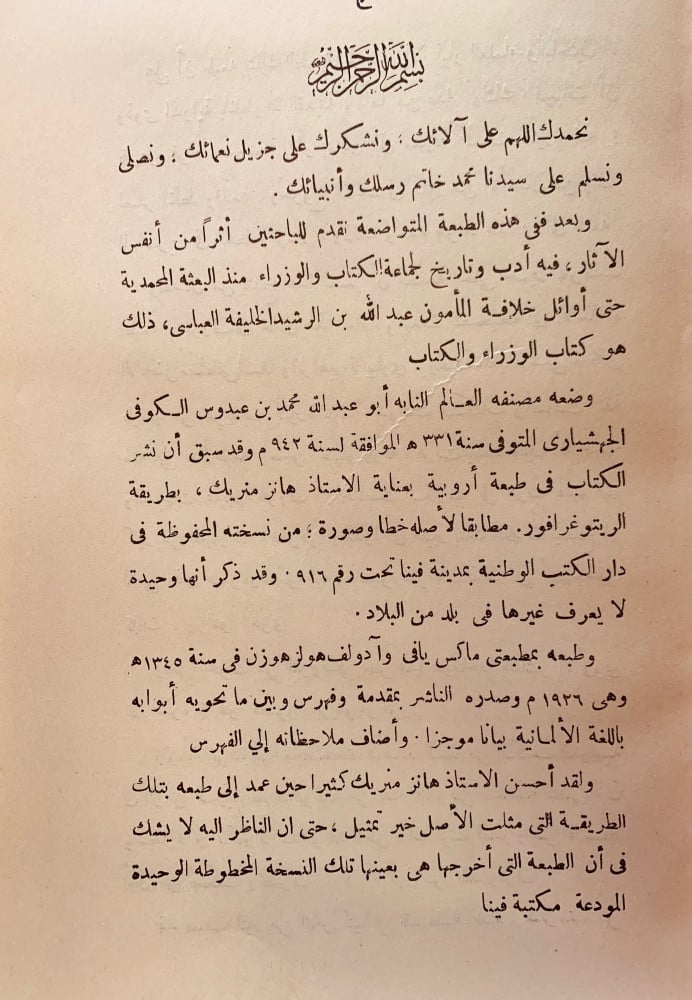 بسم الله الرحمن الرحيم
نحمدك اللهم على آلائك ؛ ونشكرك على جزيل نعمائك ؛ ونصلى
ونسلم على سيدنا محمد خاتم رسلك وأنبيائك .
وبعد ففى هذه الطبعة المتواضعة نقدم للباحثين أثراً من أنفس
الآثار ، فيه أدب وتاريخ لجماعة الكتاب والوزراء منذ البعثة المحمدية
حتى أوائل خلافة المأمون عبد الله بن الرشيد الخليفة العباسى ، ذلك
هو كتاب الوزراء والكتاب
وضعه مصنفه العالم النابه أبو عبد الله محمد بن عبدوس الكوفى
الجهشيارى المتوفى سنة ٣٣١ ه الموافقة لسنة ٩٤٢ م وقد سبق أن نشر
الكتاب فى طبعة أروبية بعناية الاستاذ هانز منريك ، بطريقة
الريتوغرافور . مطابقا لأصله خطا وصورة ؛ من نسخته المحفوظة فى
دار الكتب الوطنية بمدينة فينا تحت رقم ٩١٦ . وقد ذكر أنها وحيدة
لا يعرف غيرها فى بلد من البلاد .
وطبعه بمطبعتى ماكس يافى وآدولف هولزهوزن فى سنة ١٣٤٥ ه
وهى ١٩٢٦ م وصدره الناشر بمقدمة وفهرس وبين ما تحويه أبوابه
باللغة الألمانية بيانا موجزا . وأضاف ملاحظاته إلي الفهرس
ولقد أحسن الاستاذ هانز منريك كثيرا حين عمد إلى طبعه بتلك
الطريقة التى مثلت الأصل خير تمثيل ، حتى ان الناظر اليه لا يشك
فى أن الطبعة التى أخرجها هى بعينها تلك النسخة المخطوطة الوحيدة
المودعة مكتبة فينا